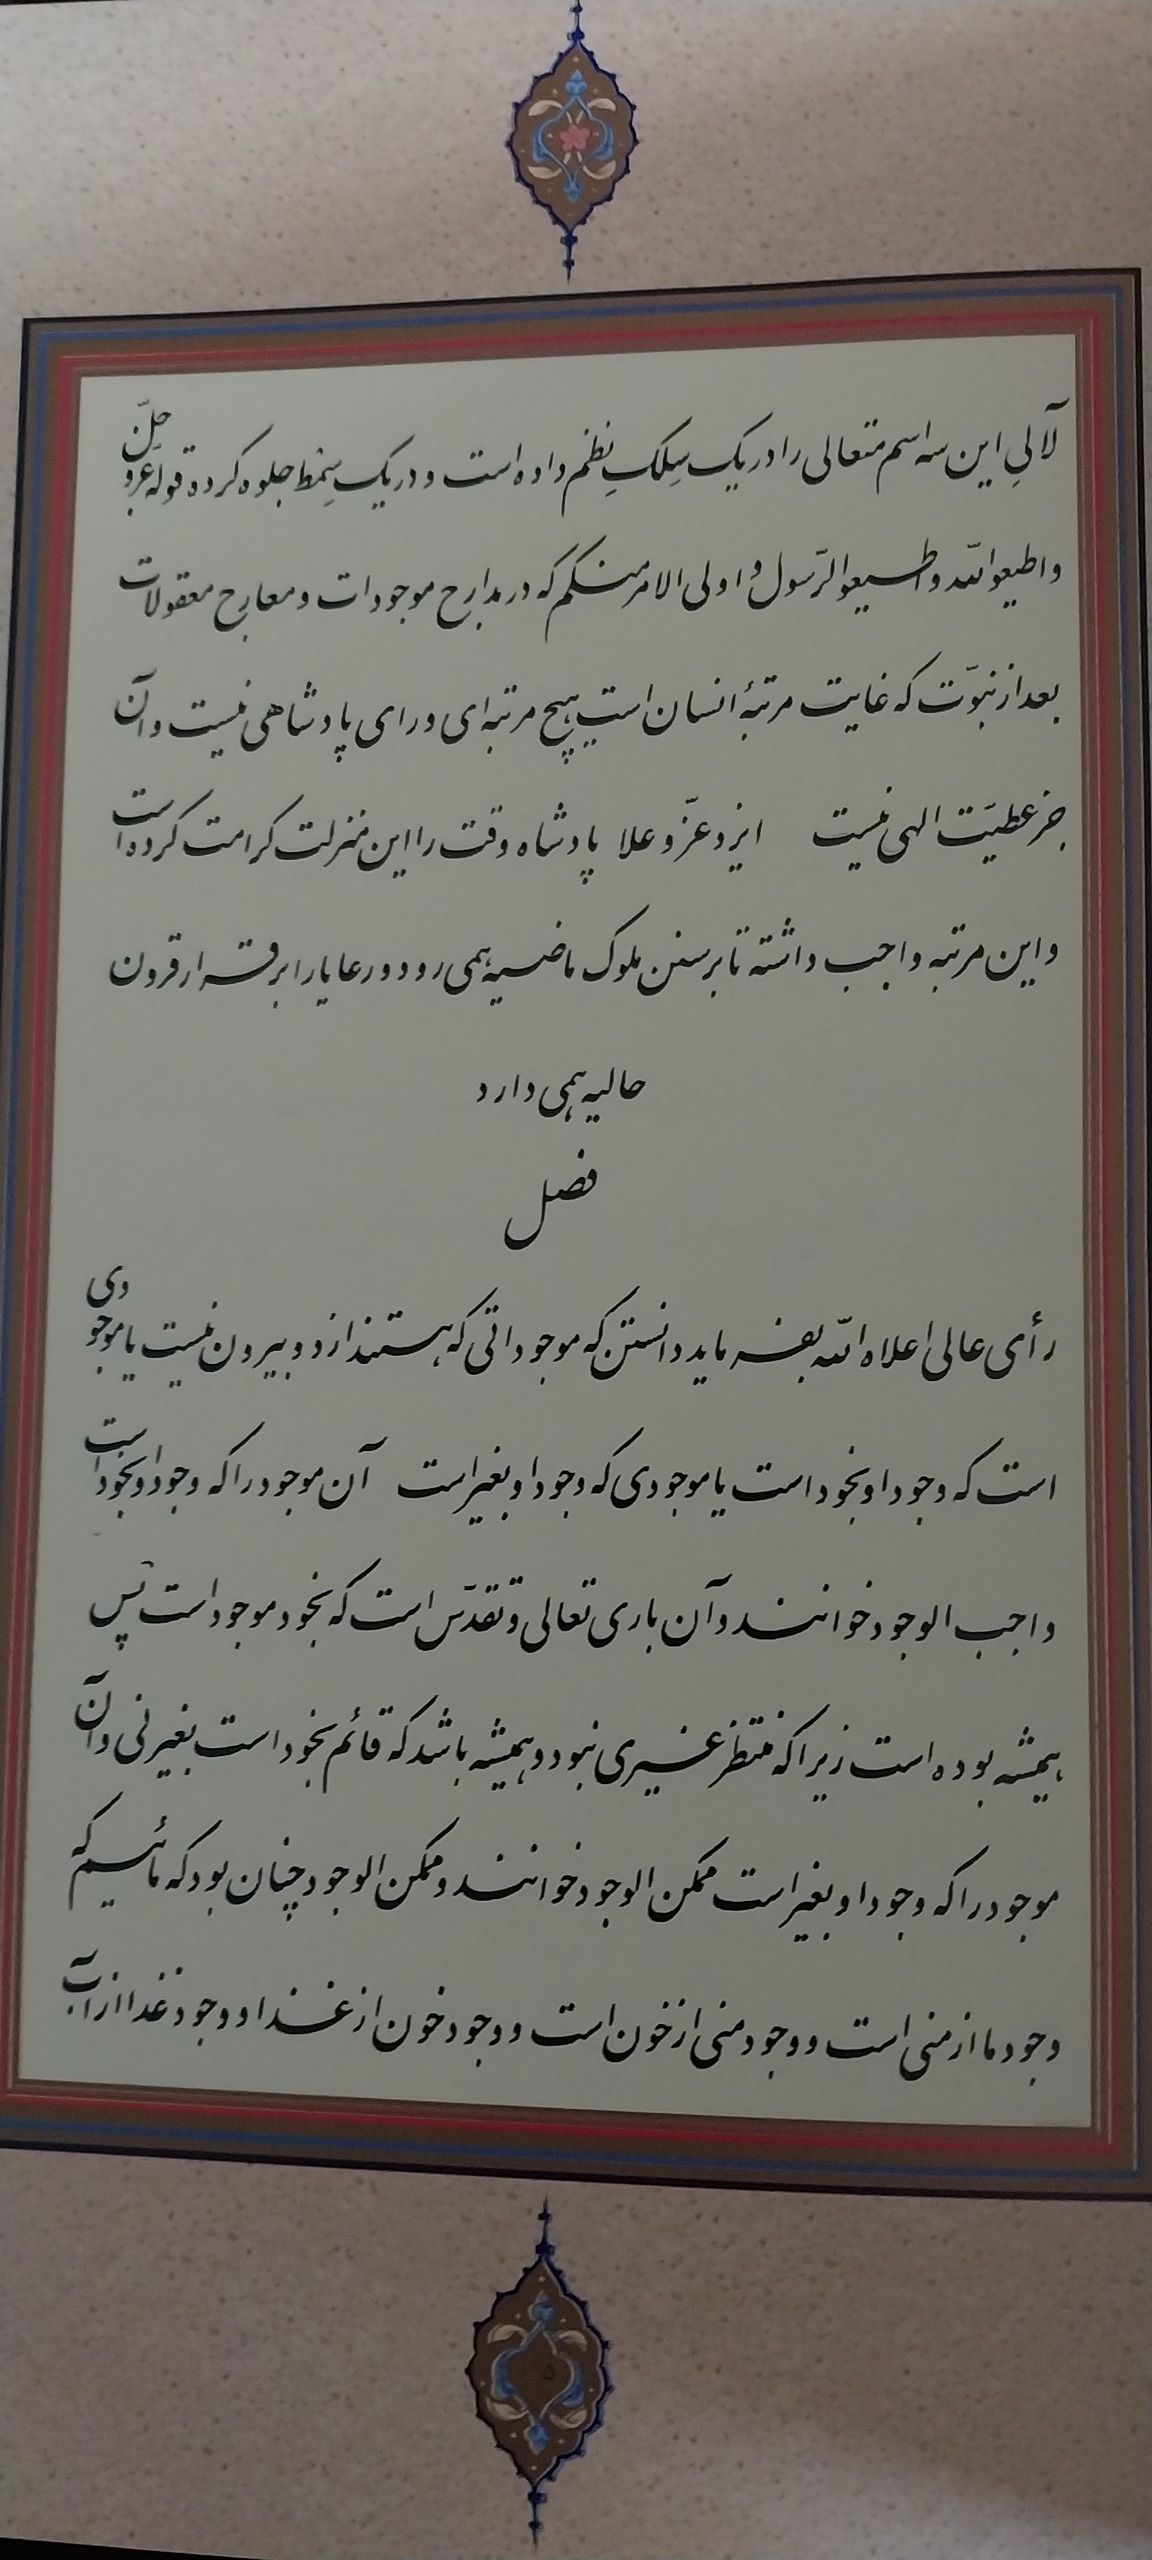 لآلیِ این سه اسم متعالی را در یک سِلکِ نظم داده است و در یک سِمط جلوه کرده قوله عزّ و جلّ
واطیعوالله واطیعوالرّسول و اولی الامر منکم که در مدارج موجودات و معارج معقولات
بعد از نبوّت که غایت مرتبهٔ انسان است هیچ مرتبه‌ای ورای پادشاهی نیست و آن
جز عطیّت الهی نیست ایزد عزّ و علا پادشاه وقت را این منزلت کرامت کرده است
و این مرتبه واجب داشته تا بر سنن ملوک ماضیه همی رود و رعایا را بر قرار قرون
حالیه همی دارد
فصل
رأی عالی اعلاه الله بفرماید دانستن که موجوداتی که هستند از دو بیرون نیست یا موجودی
است که وجود او بخود است یا موجودی که وجود او بغیر است آن موجود را که وجود او بخود است
واجب الوجود خوانند و آن باری تعالی و تقدّس است که بخود موجود است پس
همیشه بوده است زیرا که منتظر غیری نبود و همیشه باشد که قائم بخود است بغیر نی و آن
موجود را که وجود او بغیر است ممکن الوجود خوانند و ممکن الوجود چنان بود که مائیم که
وجود ما از منی است و وجود منی از خون است و وجود خون از غذا و وجود غذا از آب
۵